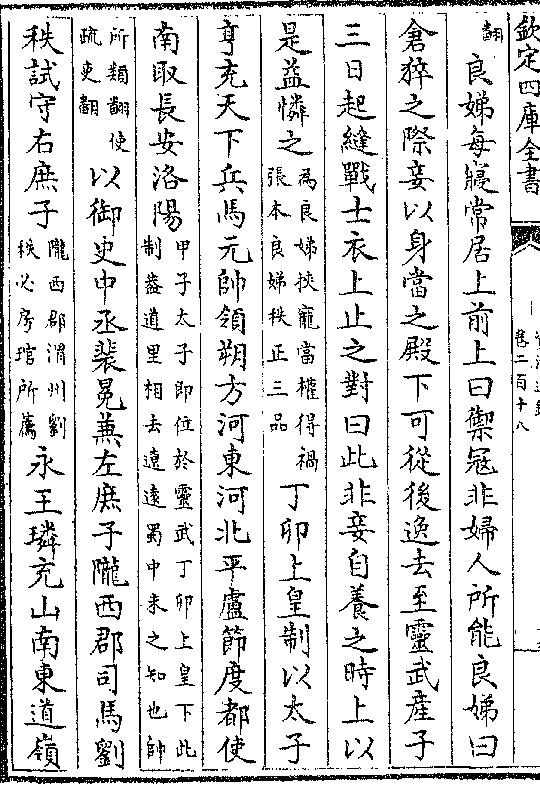 欽定四庫全書
卷二百十八
翻
良娣每寢常居上前上曰禦寇非婦人所能良娣曰
倉猝之際妾以身當之殿下可從後逸去至靈武產子
三日起縫戰士衣上止之對曰此非妾自養之時上以
是益憐之為良娣挾寵當權得禍張本良娣秩正三品丁卯上皇制以太子
亨充天下兵馬元帥領朔方河東河北平盧節度都使
南取長安洛陽甲子太子即位於靈武丁卯上皇下此制葢道里相去遼遠蜀中未之知也帥
所類翻使疏吏翻以御史中丞裴冕兼左庶子隴西郡司馬劉
秩試守右庶子隴西郡渭州劉秩必房琯所薦永王璘充山南東道嶺